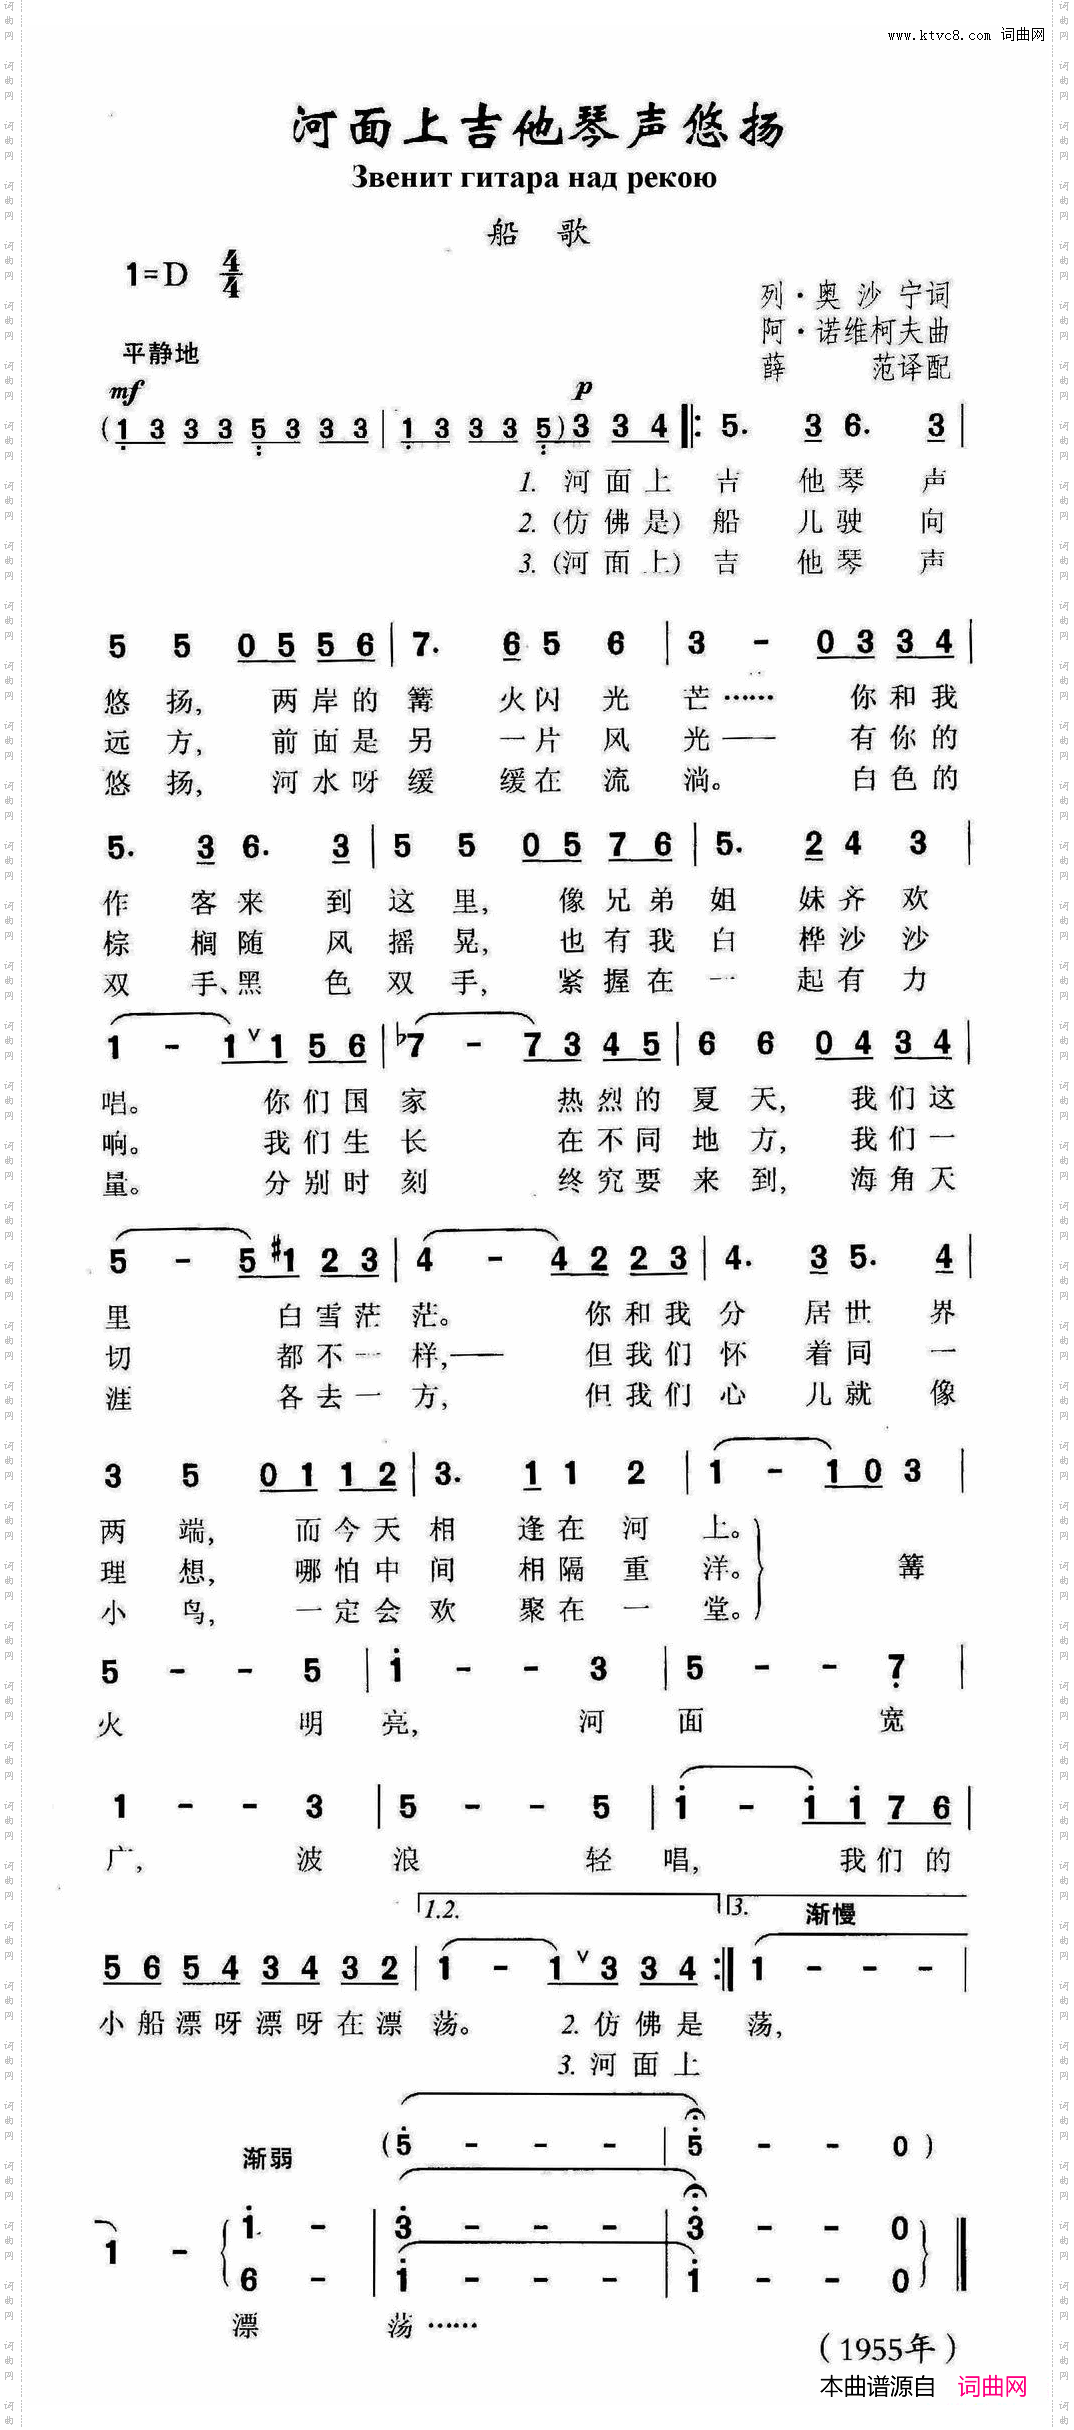 www.ktvc8.com 词曲网
河面上吉他琴声悠扬
Звенит гитара над рекою
船 歌
1=D 4/4
列·奥沙宁词
阿·诺维柯夫曲
薛 范译配
平静地
mf p
(1 3 3 3 5 3 3 3 | 1 3 3 3 5) 3 3 4 ‖: 5. 3 6. 3 |
1. 河面上 吉 他琴 声
2. (仿佛是) 船 儿驶 向
3. (河面上) 吉 他琴 声
5 5 0 5 5 6 | 7. 6 5 6 | 3 - 0 3 3 4 |
悠 扬, 两岸的 篝 火闪 光 芒…… 你和我
远 方, 前面是 另 一片 风 光—— 有你的
悠 扬, 河水呀 缓 缓在 流 淌。 白色的
5. 3 6. 3 | 5 5 0 5 7 6 | 5. 2 4 3 |
作 客来 到 这 里, 像兄弟 姐 妹齐 欢
棕 榈随 风 摇 晃, 也有我 白 桦沙 沙
双 手、黑 色 双 手, 紧握在 一 起有 力
1 - 1 ∨ 1 5 6 | ♭7 - 7 3 4 5 | 6 6 0 4 3 4 |
唱。 你们国 家 热烈的 夏 天, 我们这
响。 我们生 长 在不同 地 方, 我们一
量。 分别时 刻 终究要 来 到, 海角天
5 - 5 #1 2 3 | 4 - 4 2 2 3 | 4. 3 5. 4 |
里 白雪茫 茫。 你和我 分 居世 界
切 都不一 样,—— 但我们 怀 着同 一
涯 各去一 方, 但我们 心 儿就 像
3 5 0 1 1 2 | 3. 1 1 2 | 1 - 1 0 3 |
两 端, 而今天 相 逢在 河 上。
理 想, 哪怕中 间 相隔 重 洋。 篝
小 鸟, 一定会 欢 聚在 一 堂。
5 - - 5 | 1 - - 3 | 5 - - 7 |
火 明 亮, 河 面 宽
1 - - 3 | 5 - - 5 | 1 - 1 1 7 6 |
广, 波 浪 轻 唱, 我们的
1.2. 3. 渐慢
5 6 5 4 3 4 3 2 | 1 - 1 ∨ 3 3 4 :‖ 1 - - - |
小船漂呀漂呀在漂 荡。 2. 仿佛是 荡,
3. 河面上
渐弱 (5 - - - | 5 - - 0 )
1 - 1 - | 3 - - - | 3 - - 0
6 - | 1 - - - | 1 - - 0 ‖
漂 荡……
(1955年)
本曲谱源自 词曲网